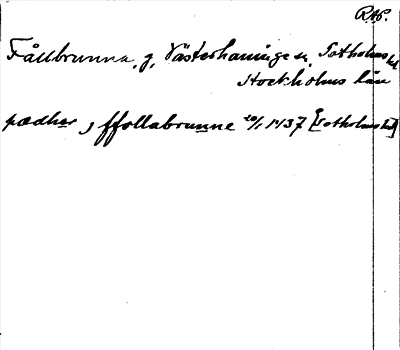 RAp.
Fållbrunna, g, Västerhaninge sn, Sotholms hd
Stockholms län
pædher j ffollabrunne 20/1 1437 [Sotholms hd]